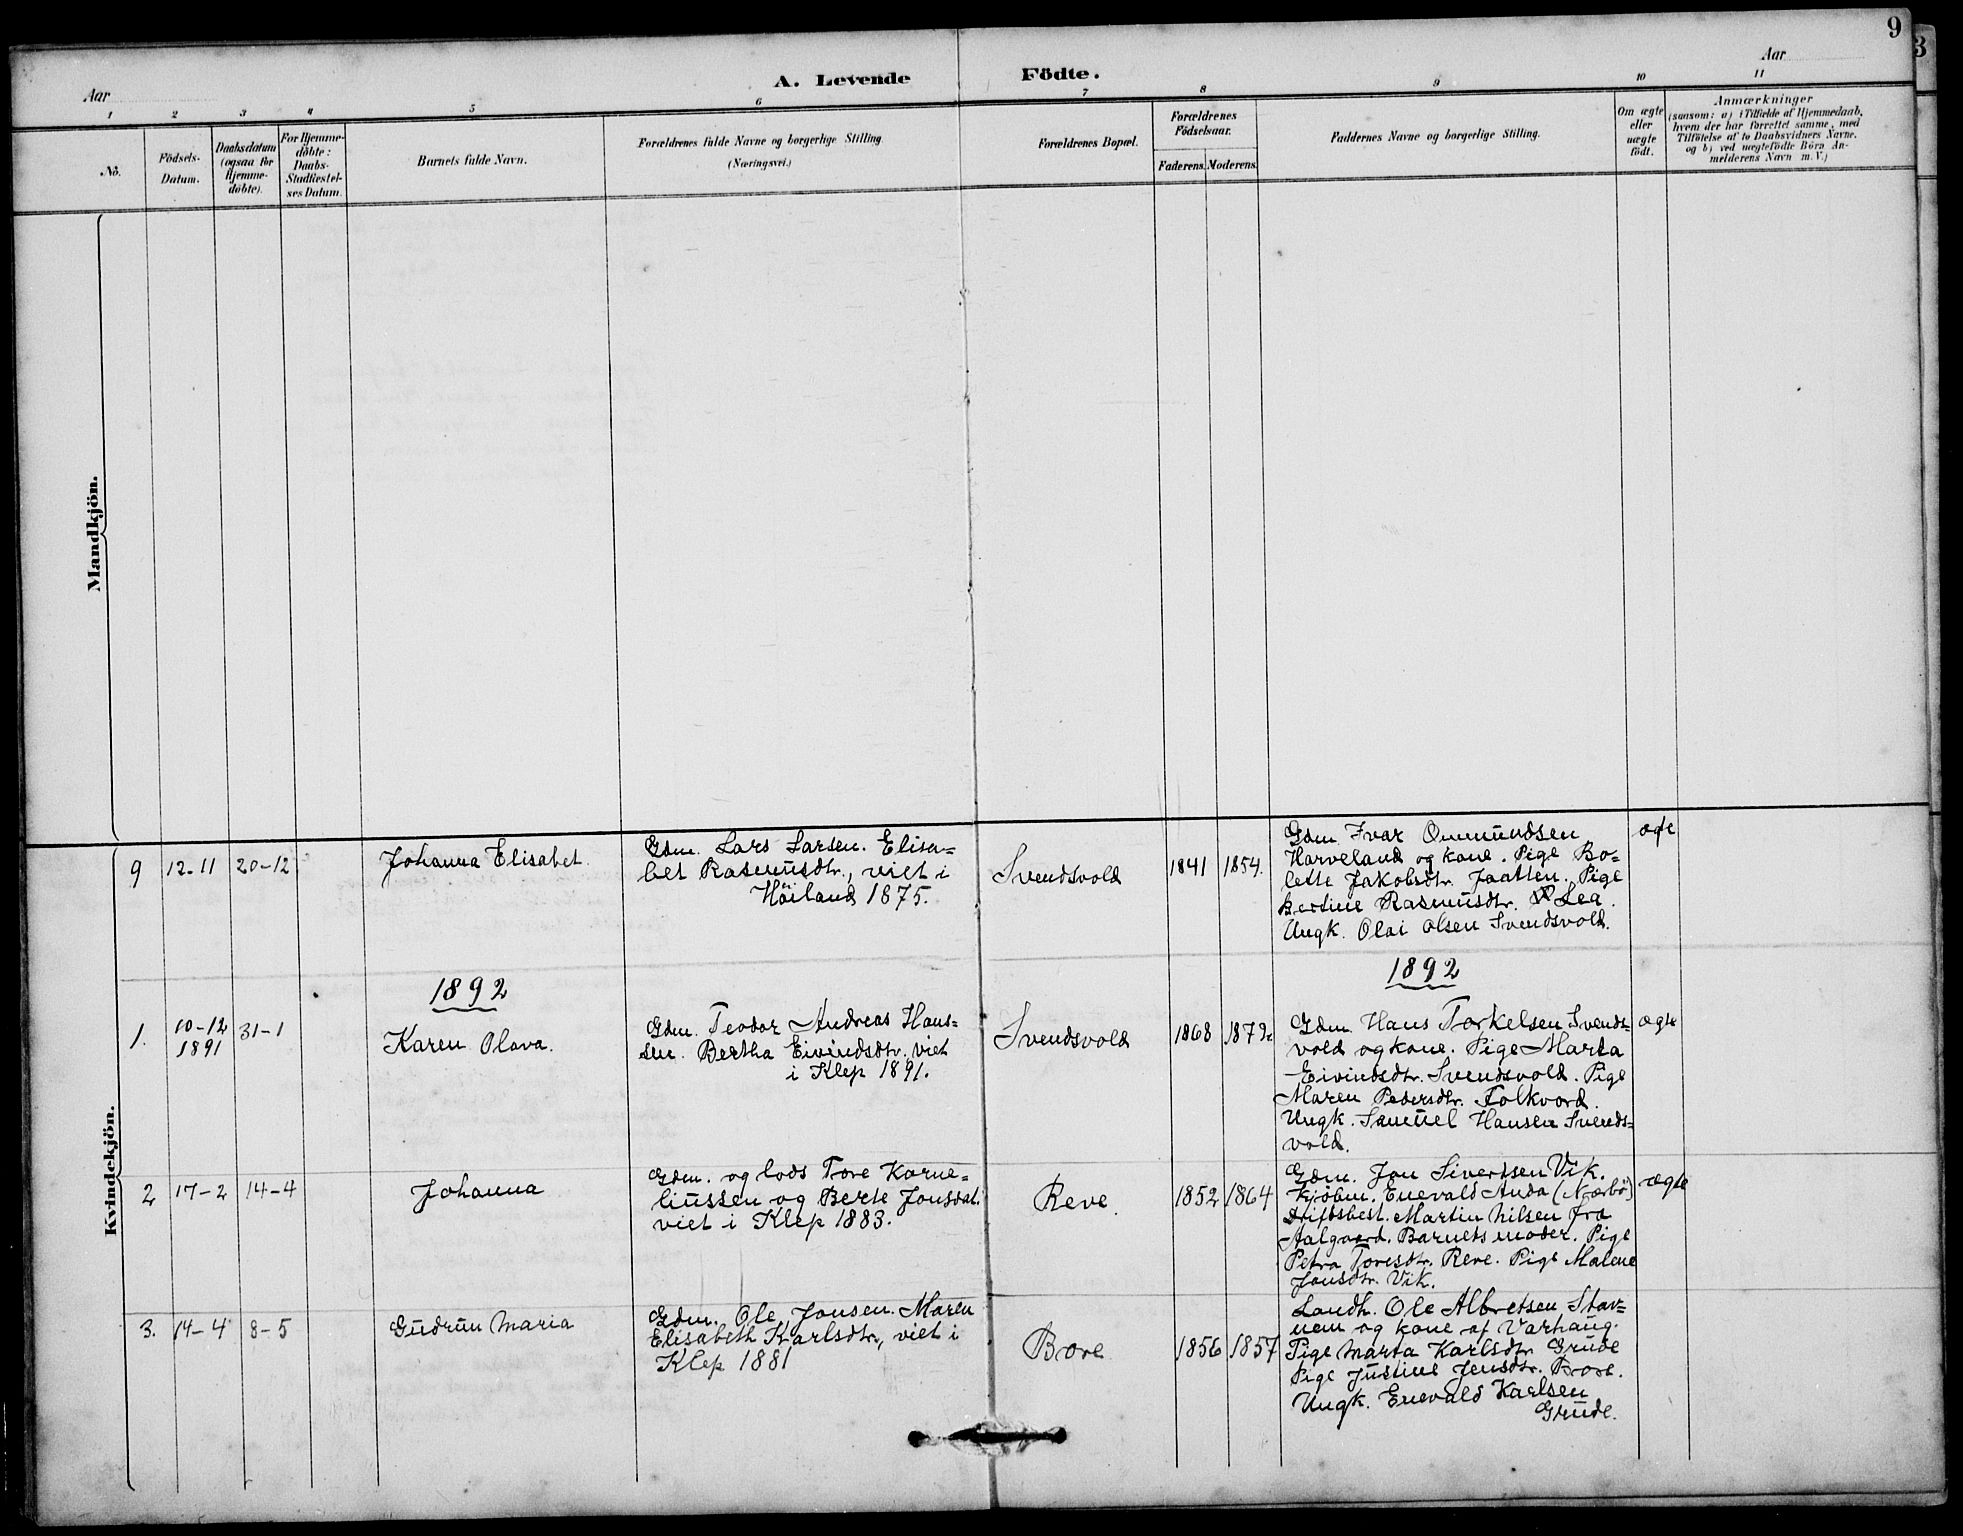 9
3
A. Levende Födte.
Aar
Aar
1 2 3 4 5 6 7 8 9 10 11
No.
Födsels-
Datum.
Daabsdatum
(ogsaa for
Hjemme-
döbte).
For Hjemme-
döbte:
Daabs-
Stadfestel-
ses Datum.
Barnets fulde Navn.
Forældrenes fulde Navne og borgerlige Stilling.
(Næringsvei.)
Forældrenes Bopæl.
Forældrenes
Födselsaar.
Faderens. Moderens.
Faddernes Navne og borgerlige Stilling.
Om ægte
eller
uægte
födt.
Anmærkninger
(saasom: a) i Tilfælde af Hjemmedaab,
hvem der har forrettet samme, med
Tilföielse af to Daabsvidners Navne.
og b) ved uægtefödte Börn An-
melderens Navn m. V.)
Mandkjön.
Kvindekjön.
9
12-11
20-12
Johanna Elisabet.
Gdm. Lars Larsen. Elisa=
bet Rasmusdtr., viet i
Höiland 1875.
Svendsvold
1841
1854.
Gdm Ivar Ommundsen
Harveland og kone. Pige Bo=
lette Jakobsdtr. Jaatten. Pige
Bertine Rasmusdtr. Lea.
Ungk. Olai Olsen Svendsvold.
ægte
1892
1892
1.
10-12
1891
31-1
Karen Olava.
Gdm. Teodor Andreas Han=
sen. Bertha Eivindsdtr. viet
i Klep 1891.
Svendsvold
1868
1872
Gdm. Hans Torkelsen Svends=
vold og kone. Pige Marta
Eivindsdtr. Svendsvold. Pige
Maren Pedersdtr. Folkvord.
Ungk. Samuel Hansen Svends=
vold.
ægte
2
17-2
14-4
Johanna
Gdm. og lods Tore Korne=
liussen og Berte Jonsdat.
viet i Klep 1883.
Reve.
1852
1864
Gdm. Jon Sivertsen Vik.
Kjöbm. Enevald Anda (Nærbö)
Driftsbest. Martin Nilsen fra
Aalgaard. Barnets moder. Pige
Petra Toresdtr. Reve. Pige Malene
Jonsdtr. Vik.
ægte
3.
14-4
8-5
Gudrun Maria
Gdm. Ole Jonsen. Maren
Elisabeth Karlsdtr., viet i
Klep 1881
Bore
1856
1857
Landh. Ole Albretsen Stav=
nem og kone af Varhaug.
Pige Marta Karlsdtr Grude
Pige Justine Jensdtr. Bore.
Ungk. Enevald Karlsen
Grude.